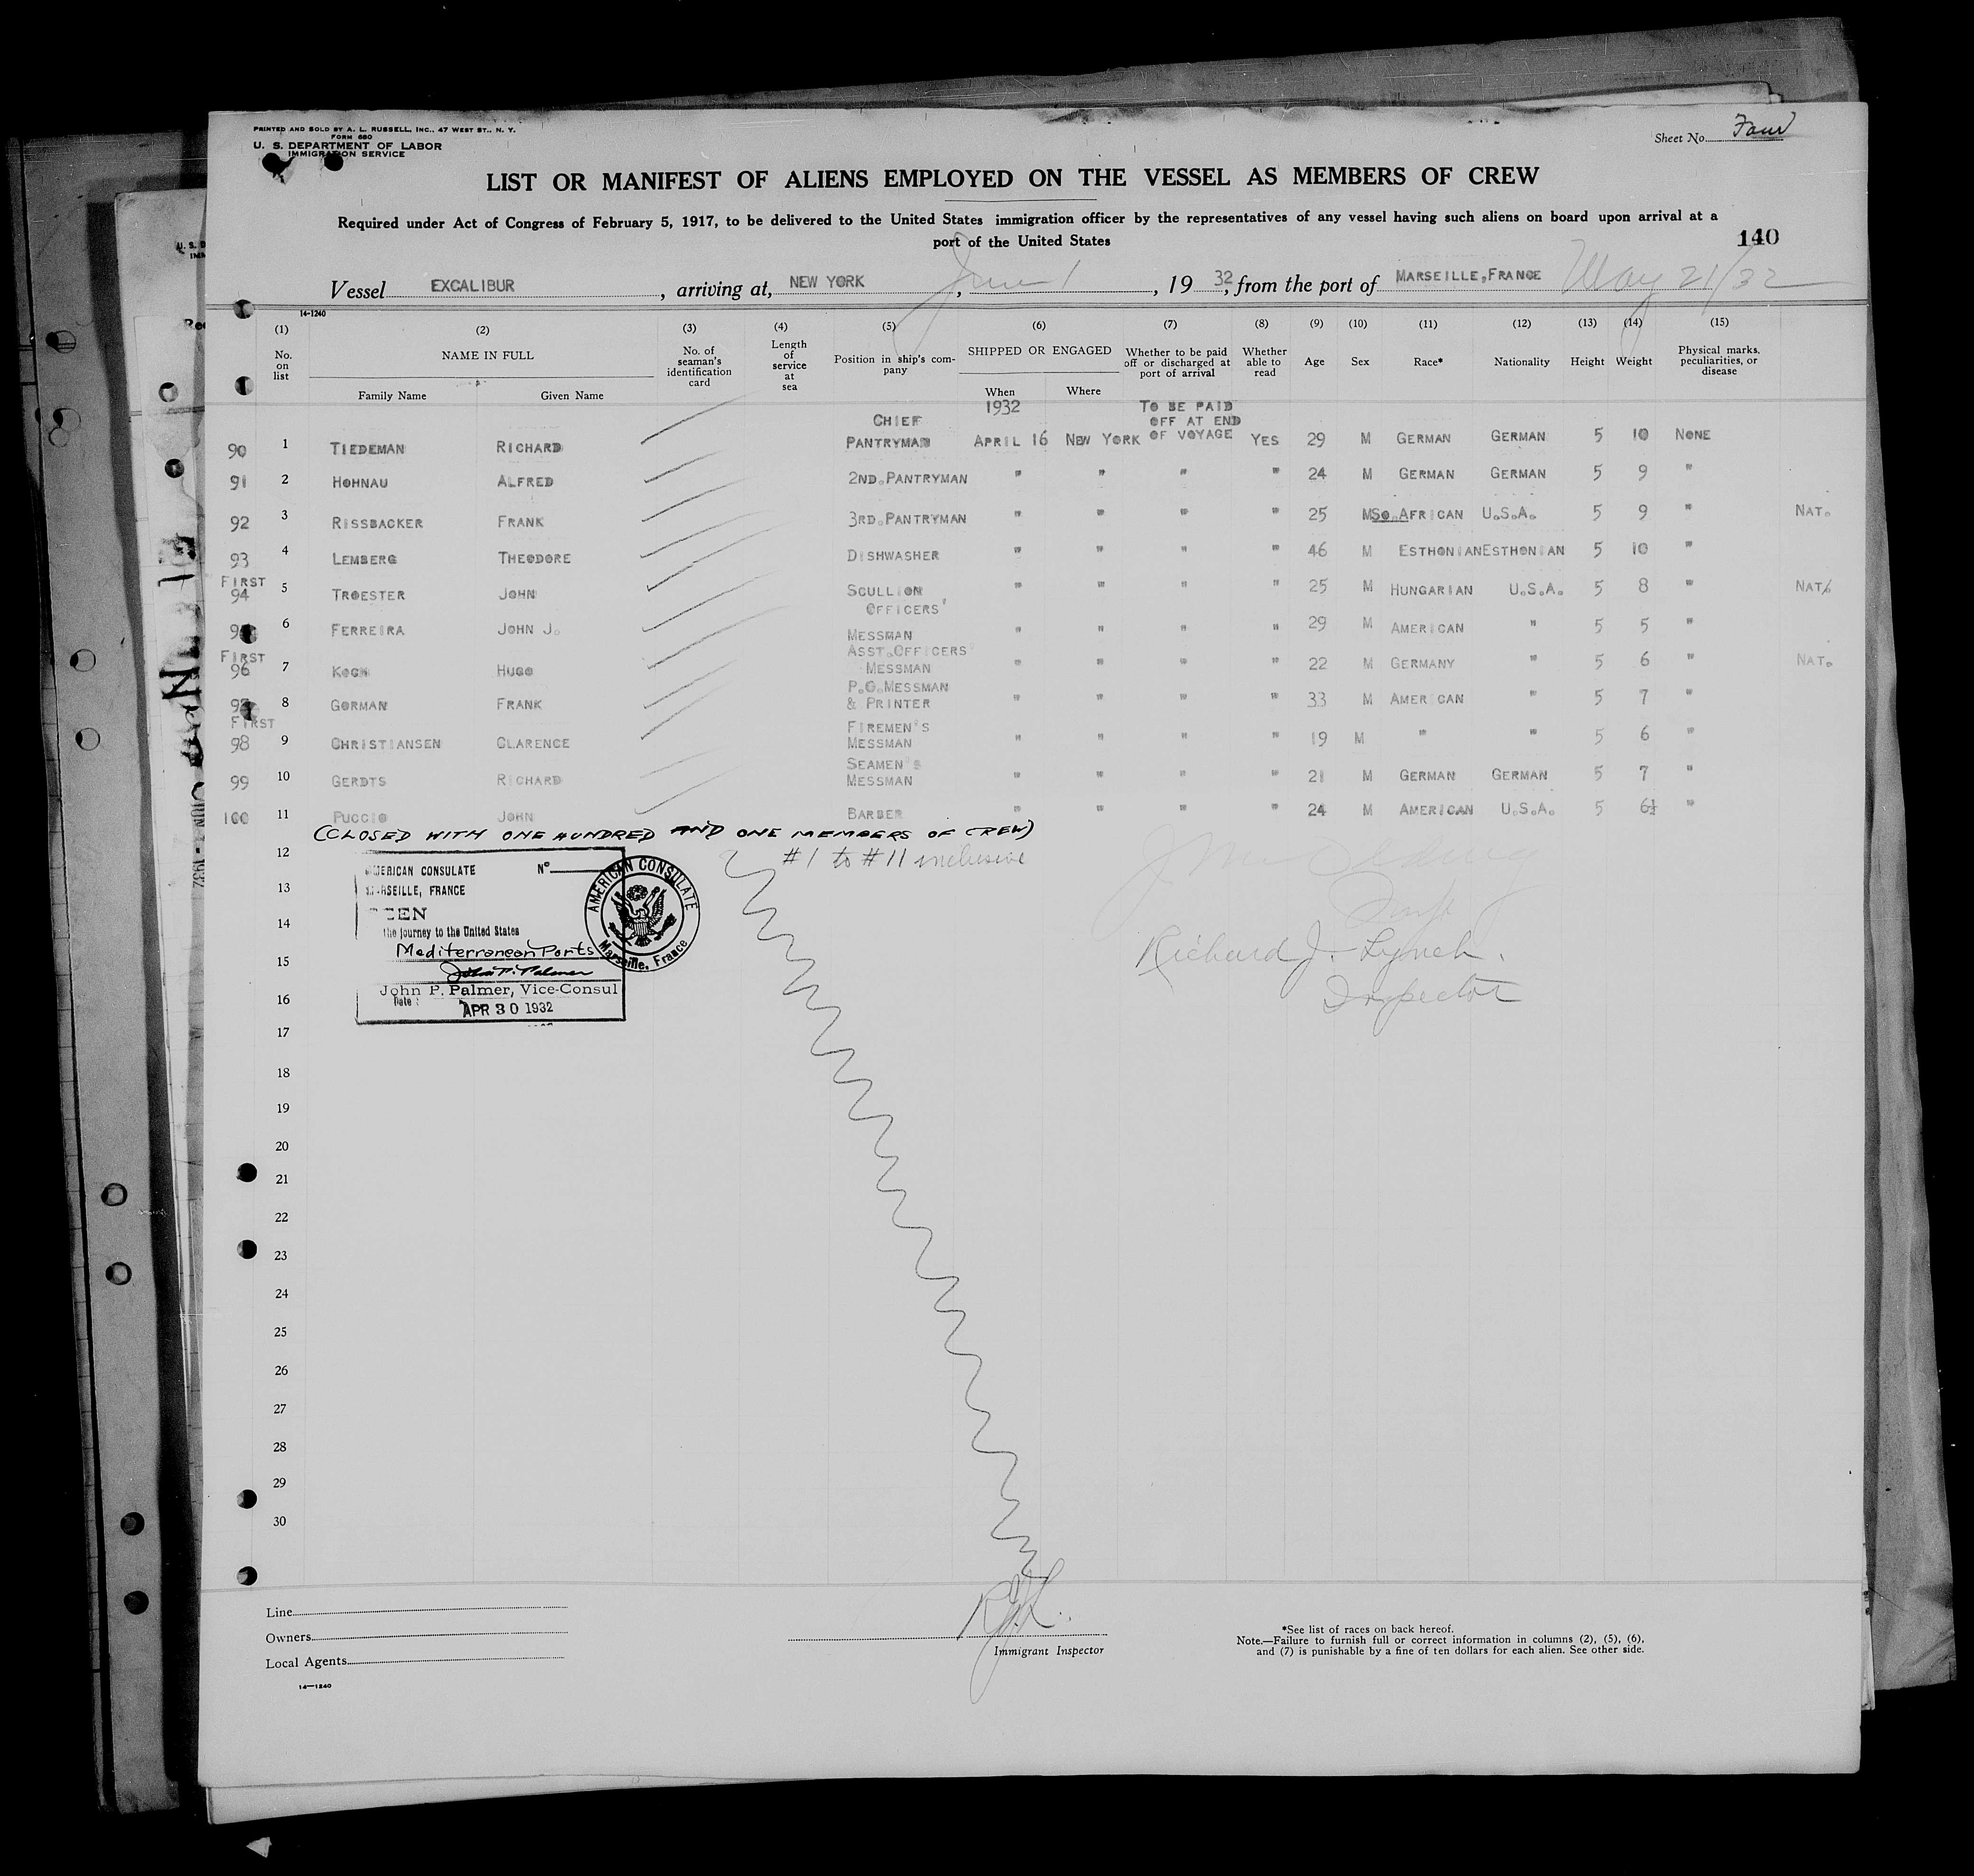 PRINTED AND SOLD BY A. L. RUSSELL, INC., 47 WEST ST., N. Y.
FORM 680
U. S. DEPARTMENT OF LABOR
IMMIGRATION SERVICE
Sheet No. Four
LIST OR MANIFEST OF ALIENS EMPLOYED ON THE VESSEL AS MEMBERS OF CREW
Required under Act of Congress of February 5, 1917, to be delivered to the United States immigration officer by the representatives of any vessel having such aliens on board upon arrival at a
port of the United States
140
Vessel EXCALIBUR, arriving at, NEW YORK, June 1, 19 32, from the port of MARSEILLE, FRANCE May 21/32
14-1240
(1) (2) (3) (4) (5) (6) (7) (8) (9) (10) (11) (12) (13) (14) (15)
No. on list NAME IN FULL Family Name Given Name No. of seaman's identification card Length of service at sea Position in ship's company SHIPPED OR ENGAGED When Where Whether to be paid off or discharged at port of arrival Whether able to read Age Sex Race* Nationality Height Weight Physical marks, peculiarities, or disease
90 1 TIEDEMAN RICHARD CHIEF PANTRYMAN 1932 APRIL 16 NEW YORK TO BE PAID OFF AT END OF VOYAGE YES 29 M GERMAN GERMAN 5 10 NONE
91 2 HOHNAU ALFRED 2ND.PANTRYMAN " " " " 24 M GERMAN GERMAN 5 9 "
92 3 RISSBACKER FRANK 3RD.PANTRYMAN " " " " 25 M SO.AFRICAN U.S.A. 5 9 " NAT.
93 4 LEMBERG THEODORE DISHWASHER " " " " 46 M ESTHONIAN ESTHONIAN 5 10 "
FIRST
94 5 TROESTER JOHN SCULLION " " " " 25 M HUNGARIAN U.S.A. 5 8 " NAT.
6 FERREIRA JOHN J. OFFICERS' MESSMAN " " " " 29 M AMERICAN " 5 5 "
FIRST
96 7 KOCH HUGO ASST.OFFICERS' MESSMAN " " " " 22 M GERMANY " 5 6 " NAT.
97 8 GORMAN FRANK P.O.MESSMAN & PRINTER " " " " 33 M AMERICAN " 5 7 "
FIRST
98 9 CHRISTIANSEN CLARENCE FIREMEN'S MESSMAN " " " " 19 M " " 5 6 "
99 10 GERDTS RICHARD SEAMEN'S MESSMAN " " " " 21 M GERMAN GERMAN 5 7 "
100 11 PUCCIO JOHN BARBER " " " " 24 M AMERICAN U.S.A. 5 6½ "
(CLOSED WITH ONE HUNDRED AND ONE MEMBERS OF CREW)
#1 to #11 inclusive
12
13
14
15
16
17
18
19
20
21
22
23
24
25
26
27
28
29
30
AMERICAN CONSULATE Nº
MARSEILLE, FRANCE
SEEN
the journey to the United States
Mediterranean Ports
John P. Palmer
John P. Palmer, Vice-Consul
Date: APR 30 1932
AMERICAN CONSULATE
Marseille, France
Richard J. Lynch.
Inspector
Line
Owners
Local Agents
14—1240
RJL.
Immigrant Inspector
*See list of races on back hereof.
Note.—Failure to furnish full or correct information in columns (2), (5), (6),
and (7) is punishable by a fine of ten dollars for each alien. See other side.